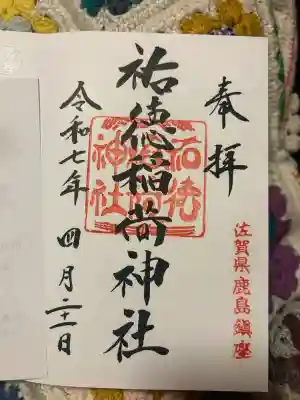 奉拝
佐賀県鹿島鎮座
祐徳稲荷神社
祐徳稲荷神社
令和七年 四月二十一日